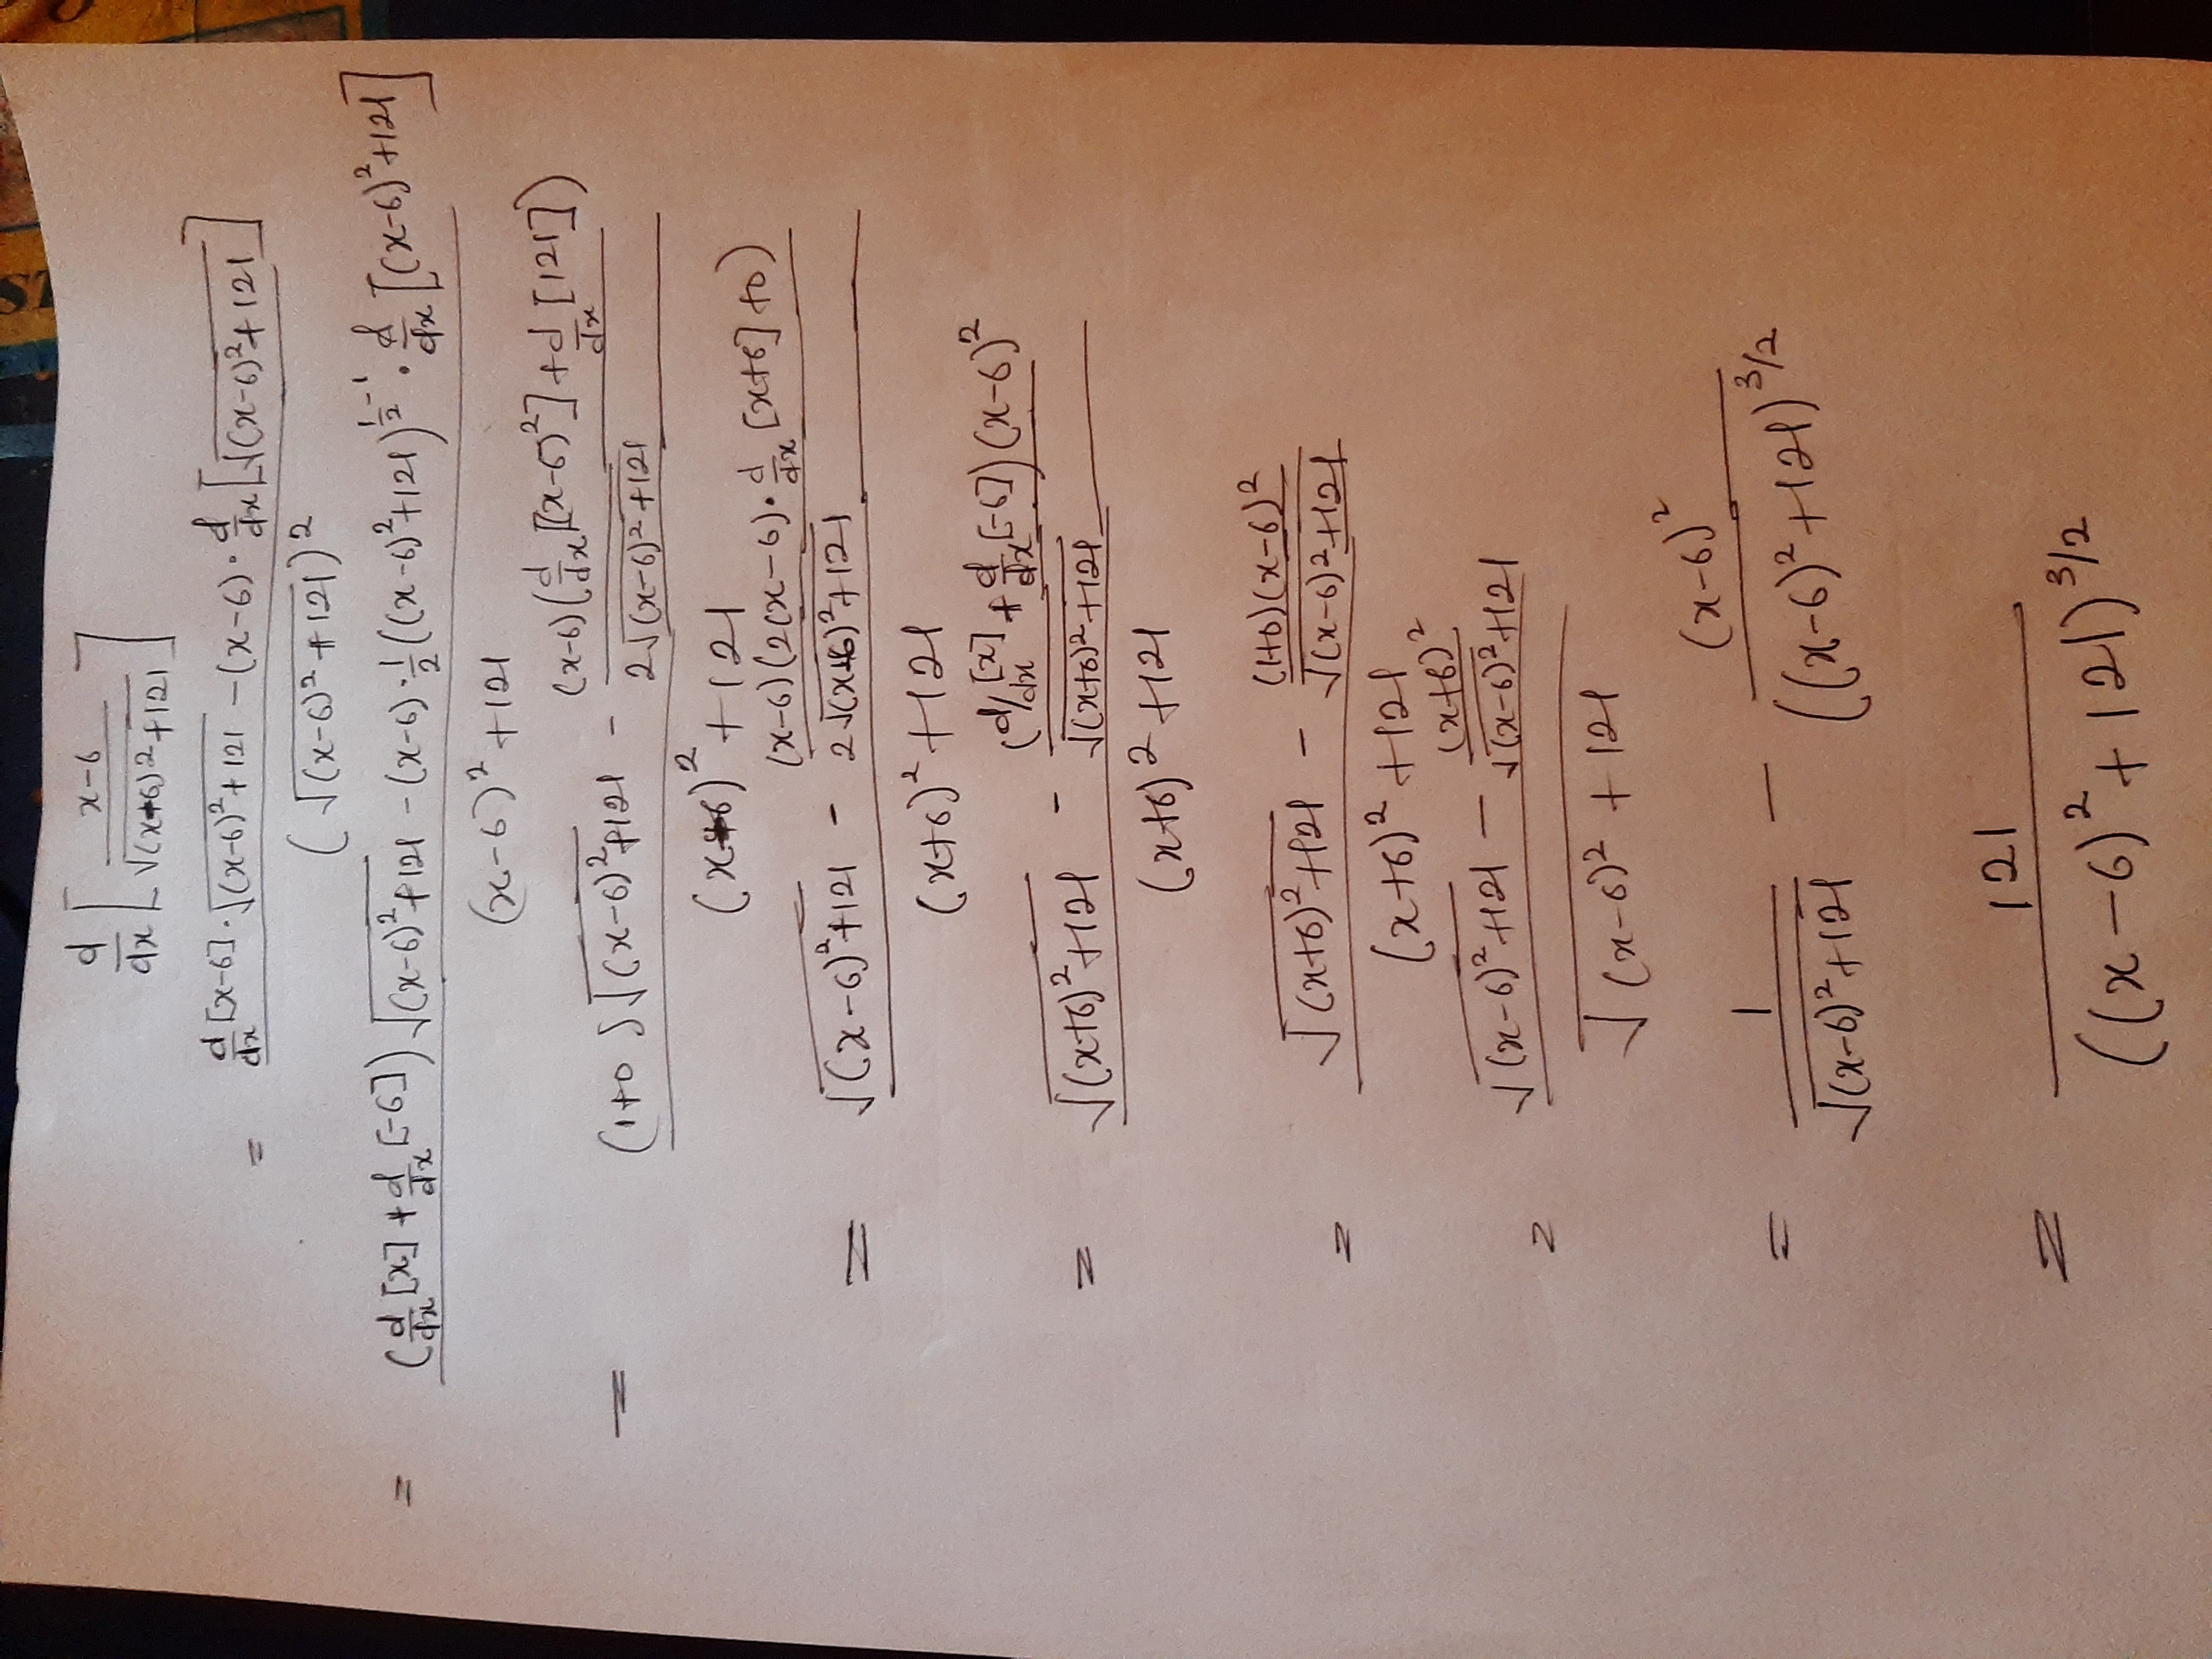 d/dx [ (x-6) / √((x-6)²+121) ]
= ( d/dx [x-6] · √((x-6)²+121) - (x-6) · d/dx [√((x-6)²+121)] ) / (√((x-6)²+121))²
= ( (d/dx [x] + d/dx [-6]) √((x-6)²+121) - (x-6) · 1/2 ((x-6)²+121)^(1/2 -1) · d/dx [(x-6)²+121] ) / ((x-6)²+121)
= ( (1+0) √((x-6)²+121) - (x-6)(d/dx [(x-6)²] + d/dx [121]) / (2√((x-6)²+121)) ) / ((x-6)²+121)
= ( √((x-6)²+121) - (x-6)(2(x-6) · d/dx [x+6] +0) / (2√((x-6)²+121)) ) / ((x+6)²+121)
= ( √((x+6)²+121) - (d/dx [x] + d/dx [-6])(x-6)² / √((x+6)²+121) ) / ((x+6)²+121)
= ( √((x+6)²+121) - (1+0)(x-6)² / √((x-6)²+121) ) / ((x+6)²+121)
= ( √((x-6)²+121) - (x+6)² / √((x-6)²+121) ) / √((x-6)²+121)
= 1 / √((x-6)²+121) - (x-6)² / ((x-6)²+121)^(3/2)
= 121 / ((x-6)²+121)^(3/2)